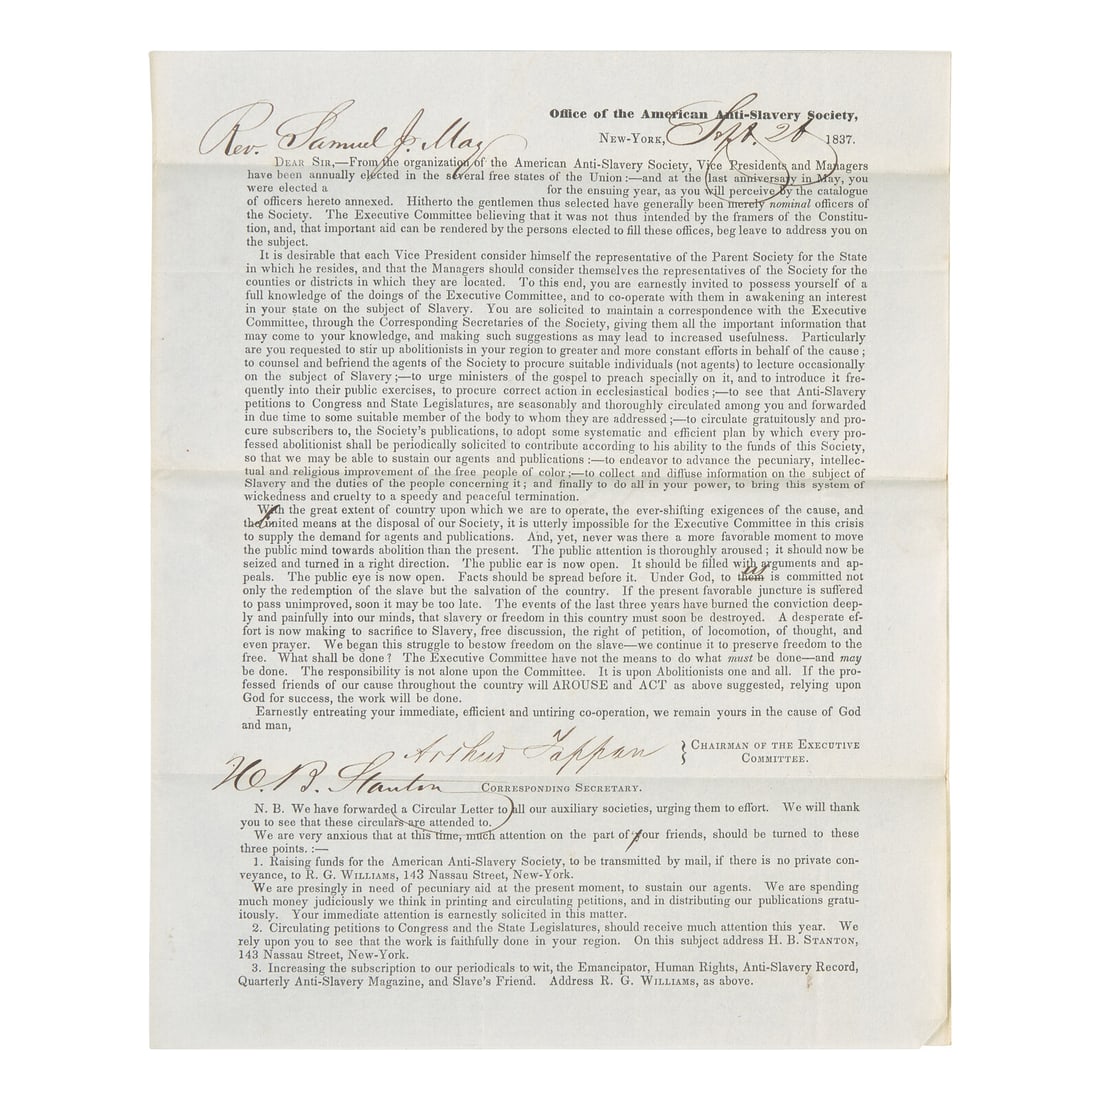 Office of the American Anti-Slavery Society,
New-York, Sept. 26 1837.
Rev. Samuel J. May
Dear Sir,—From the organization of the American Anti-Slavery Society, Vice Presidents and Managers
have been annually elected in the several free states of the Union:—and at the last anniversary in May, you
were elected a for the ensuing year, as you will perceive by the catalogue
of officers hereto annexed. Hitherto the gentlemen thus selected have generally been merely nominal officers of
the Society. The Executive Committee believing that it was not thus intended by the framers of the Constitu-
tion, and, that important aid can be rendered by the persons elected to fill these offices, beg leave to address you on
the subject.
It is desirable that each Vice President consider himself the representative of the Parent Society for the State
in which he resides, and that the Managers should consider themselves the representatives of the Society for the
counties or districts in which they are located. To this end, you are earnestly invited to possess yourself of a
full knowledge of the doings of the Executive Committee, and to co-operate with them in awakening an interest
in your state on the subject of Slavery. You are solicited to maintain a correspondence with the Executive
Committee, through the Corresponding Secretaries of the Society, giving them all the important information that
may come to your knowledge, and making such suggestions as may lead to increased usefulness. Particularly
are you requested to stir up abolitionists in your region to greater and more constant efforts in behalf of the cause;
to counsel and befriend the agents of the Society to procure suitable individuals (not agents) to lecture occasionally
on the subject of Slavery;—to urge ministers of the gospel to preach specially on it, and to introduce it fre-
quently into their public exercises, to procure correct action in ecclesiastical bodies;—to see that Anti-Slavery
petitions to Congress and State Legislatures, are seasonably and thoroughly circulated among you and forwarded
in due time to some suitable member of the body to whom they are addressed;—to circulate gratuitously and pro-
cure subscribers to, the Society's publications, to adopt some systematic and efficient plan by which every pro-
fessed abolitionist shall be periodically solicited to contribute according to his ability to the funds of this Society,
so that we may be able to sustain our agents and publications:—to endeavor to advance the pecuniary, intellec-
tual and religious improvement of the free people of color;—to collect and diffuse information on the subject of
Slavery and the duties of the people concerning it; and finally to do all in your power, to bring this system of
wickedness and cruelty to a speedy and peaceful termination.
With the great extent of country upon which we are to operate, the ever-shifting exigences of the cause, and
the united means at the disposal of our Society, it is utterly impossible for the Executive Committee in this crisis
to supply the demand for agents and publications. And, yet, never was there a more favorable moment to move
the public mind towards abolition than the present. The public attention is thoroughly aroused; it should now be
seized and turned in a right direction. The public ear is now open. It should be filled with arguments and ap-
peals. The public eye is now open. Facts should be spread before it. Under God, to them us is committed not
only the redemption of the slave but the salvation of the country. If the present favorable juncture is suffered
to pass unimproved, soon it may be too late. The events of the last three years have burned the conviction deep-
ly and painfully into our minds, that slavery or freedom in this country must soon be destroyed. A desperate ef-
fort is now making to sacrifice to Slavery, free discussion, the right of petition, of locomotion, of thought, and
even prayer. We began this struggle to bestow freedom on the slave—we continue it to preserve freedom to the
free. What shall be done? The Executive Committee have not the means to do what must be done—and may
be done. The responsibility is not alone upon the Committee. It is upon Abolitionists one and all. If the pro-
fessed friends of our cause throughout the country will AROUSE and ACT as above suggested, relying upon
God for success, the work will be done.
Earnestly entreating your immediate, efficient and untiring co-operation, we remain yours in the cause of God
and man,
Arthur Tappan } Chairman of the Executive
Committee.
H. B. Stanton Corresponding Secretary.
N. B. We have forwarded a Circular Letter to all our auxiliary societies, urging them to effort. We will thank
you to see that these circulars are attended to.
We are very anxious that at this time, much attention on the part of our friends, should be turned to these
three points. :—
1. Raising funds for the American Anti-Slavery Society, to be transmitted by mail, if there is no private con-
veyance, to R. G. Williams, 143 Nassau Street, New-York.
We are presingly in need of pecuniary aid at the present moment, to sustain our agents. We are spending
much money judiciously we think in printing and circulating petitions, and in distributing our publications gratu-
itously. Your immediate attention is earnestly solicited in this matter.
2. Circulating petitions to Congress and the State Legislatures, should receive much attention this year. We
rely upon you to see that the work is faithfully done in your region. On this subject address H. B. Stanton,
143 Nassau Street, New-York.
3. Increasing the subscription to our periodicals to wit, the Emancipator, Human Rights, Anti-Slavery Record,
Quarterly Anti-Slavery Magazine, and Slave's Friend. Address R. G. Williams, as above.